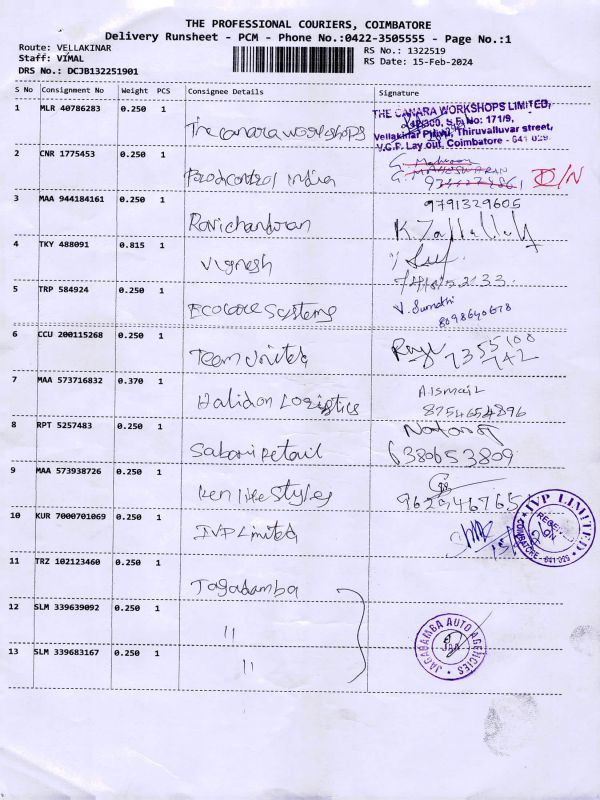 THE PROFESSIONAL COURIERS, COIMBATORE
Delivery Runsheet - PCM - Phone No.:0422-3505555 - Page No.:1
Route: VELLAKINAR
RS No.: 1322519
Staff: VIMAL
RS Date: 15-Feb-2024
DRS No.: DCJB132251901
S No Consignment No Weight PCS Consignee Details Signature
1 MLR 40786283 0.250 1 The canara workshops
THE CANARA WORKSHOPS LIMITED,
S.F. No: 171/9,
Vellakinar Pirivu, Thiruvalluvar street,
V.G.F. Lay out, Coimbatore - 641 029.
2 CNR 1775453 0.250 1 Foodcontrol india
G. MAHESWARAN
3 MAA 944184161 0.250 1 Ravichandran
9791329605
4 TKY 488091 0.815 1 Vignesh
5 TRP 584924 0.250 1 Ecocare Systems
V. Sumathi
8098640678
6 CCU 200115268 0.250 1 Team United
7355100
742
7 MAA 573716832 0.370 1 Halidon Logistics
A.ISmaiL
8754654896
8 RPT 5257483 0.250 1 Sabari Retail
6380653809
9 MAA 573938726 0.250 1 Ken life Styles
9629946765
10 KUR 7000701069 0.250 1 IVP Limited
IVP LIMITED
COIMBATORE - 641 029
11 TRZ 102123460 0.250 1 Jagadamba
12 SLM 339639092 0.250 1 11
JAGADAMBA AUTO AGENCIES
JAA
13 SLM 339683167 0.250 1 11